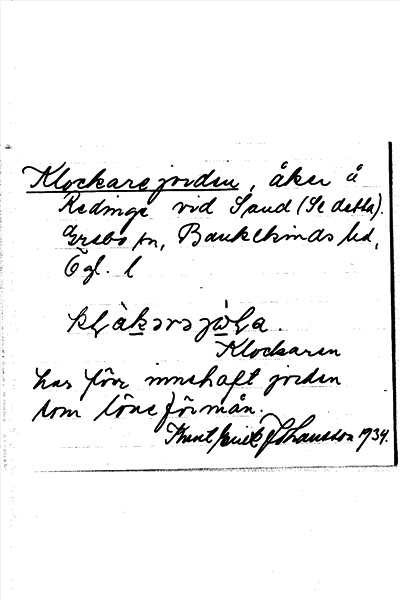 Klockarejorden, åker å
Redinge vid Sand (Se detta).
Grebo sn, Bankekinds hd,
Ögl. l
Klockaren
har förr innehaft jorden
som löneförmån.
Knut Erick Johansson 1934.